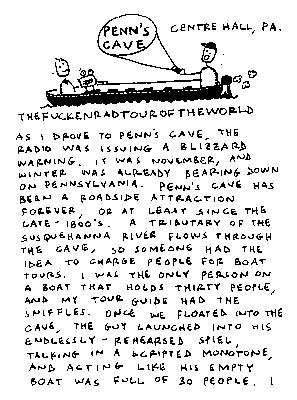 PENN'S
CAVE
CENTRE HALL, PA.
THEFUCKENRADTOUROFTHEWORLD
AS I DROVE TO PENN'S CAVE, THE
RADIO WAS ISSUING A BLIZZARD
WARNING. IT WAS NOVEMBER, AND
WINTER WAS ALREADY BEARING DOWN
ON PENNSYLVANIA. PENN'S CAVE HAS
BEEN A ROADSIDE ATTRACTION
FOREVER, OR AT LEAST SINCE THE
LATE-1800'S. A TRIBUTARY OF THE
SUSQUEHANNA RIVER FLOWS THROUGH
THE CAVE, SO SOMEONE HAD THE
IDEA TO CHARGE PEOPLE FOR BOAT
TOURS. I WAS THE ONLY PERSON ON
A BOAT THAT HOLDS THIRTY PEOPLE,
AND MY TOUR GUIDE HAD THE
SNIFFLES. ONCE WE FLOATED INTO THE
CAVE, THE GUY LAUNCHED INTO HIS
ENDLESSLY-REHEARSED SPIEL,
TALKING IN A SCRIPTED MONOTONE,
AND ACTING LIKE HIS EMPTY
BOAT WAS FULL OF 30 PEOPLE. I